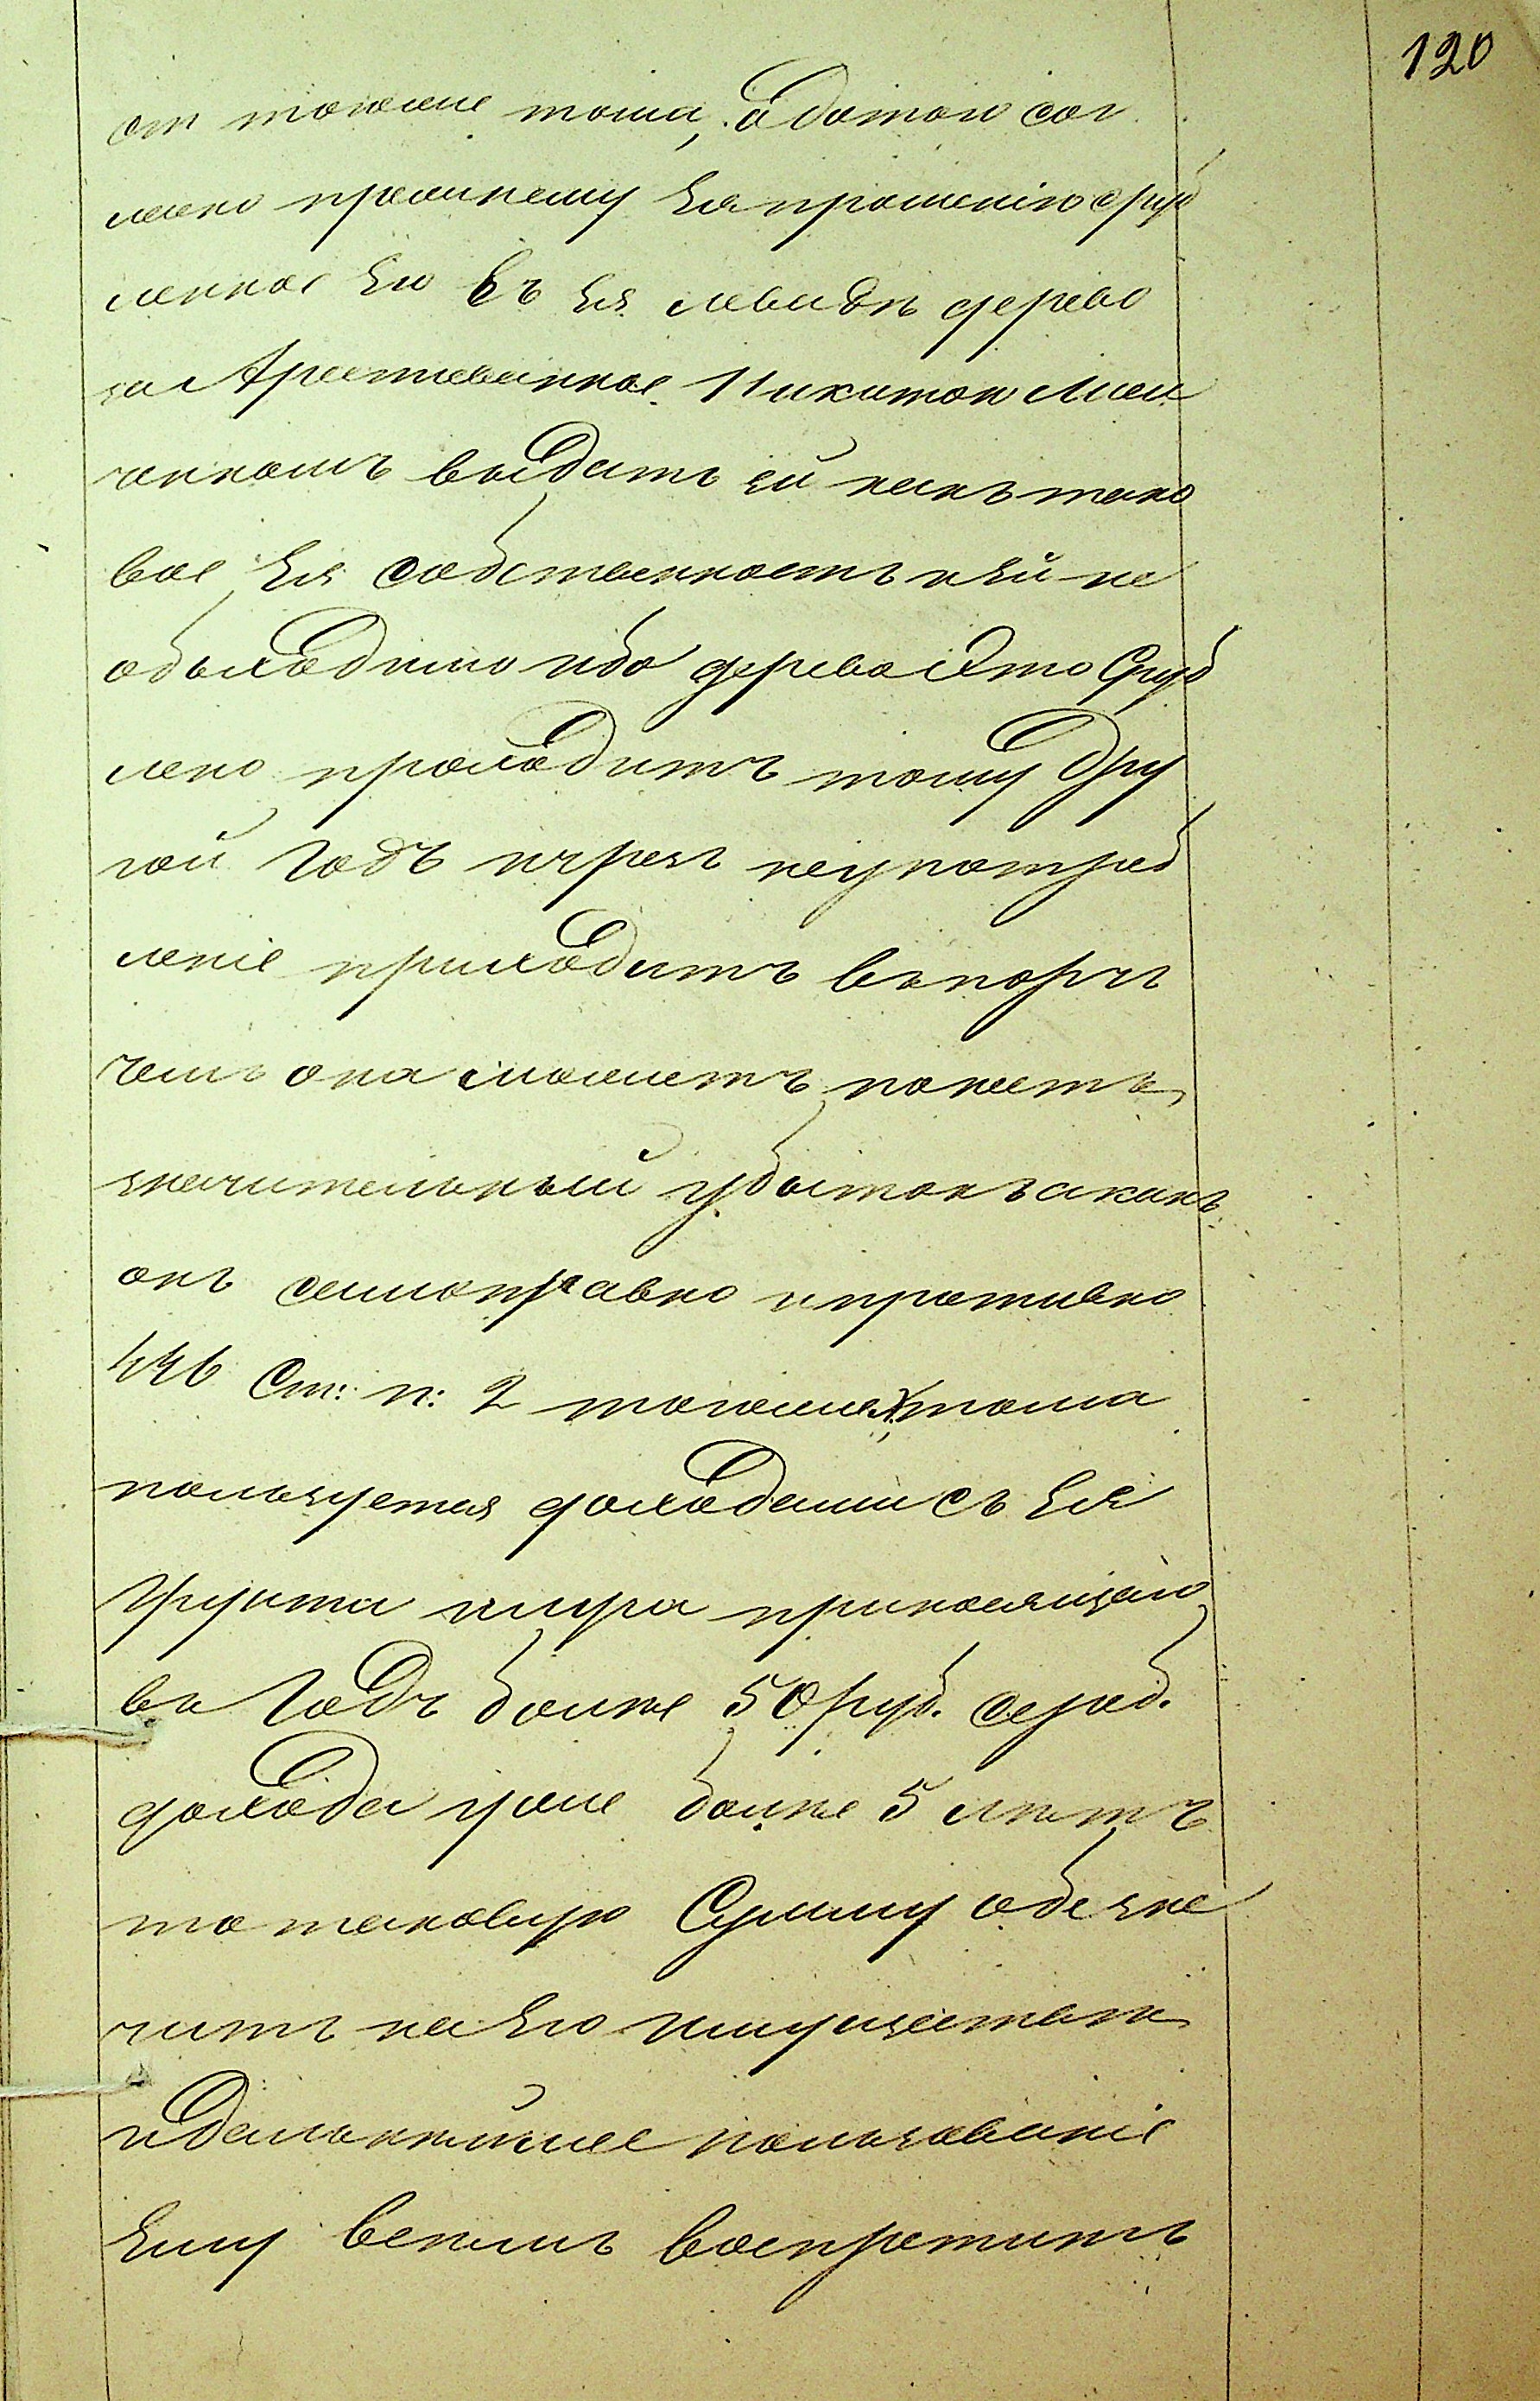 120
ст. тогоже тома, а потом сог
лено прежнему Ея прошенію сруб
ленное Ею въ Ея левадѣ дерево
заАрестованное Никитою
ченкомъ выдать ей какъ тако
вое Ея собственность и Ей не
обьходимо ибо дерево Это Сруб
лено проходитъ тому дру
гой годъ и чрезъ неупотреб
леніе приходитъ въ порчу
чемъ она можетъ понесть
значительный убытокъ а какъ
онъ самоправно и противно
446 Ст: п: 2 тогоже X, тома
пользуется доходами съ Ея
грунта приносящаго
въ годъ более 50 руб. сереб.
дохода уже более 5 лѣтъ
то таковую Сумму обезпе
чить на Его имуществѣ
и дальнѣйшее пользованіе
Ему вемъ воспретить